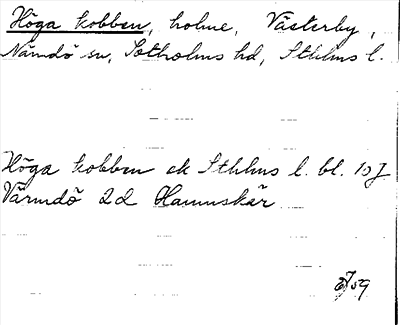 Höga kobben, holme, Västerby,
Nämdö sn, Sotholms hd, Sthlms l.
Höga kobben ek Sthlms l. bl. 10J
Värmdö 2d Hamnskär